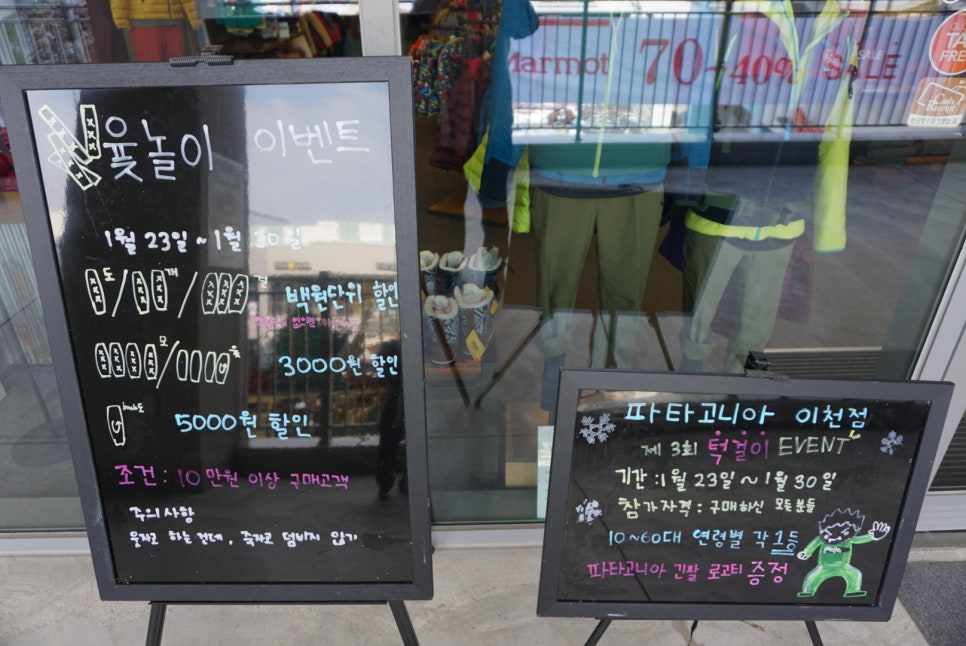 윷놀이 이벤트
1월 23일 ~ 1월 30일
도 / 개 / 걸 백원단위 할인
모 / 윷 3000원 할인
back도 5000원 할인
조건 : 10 만원 이상 구매고객
주의 사항
웃자고 하는 건데, 죽자고 덤비지 않기
Marmot 70~40% SALE
SALE
TAX FREE
Cash Receipt
파타고니아 이천점
제 3회 턱걸이 EVENT
기간 : 1월 23일 ~ 1월 30일
참가자격 : 구매하신 모든분들
10~60대 연령별 각 1등
파타고니아 긴팔 로고티 증정